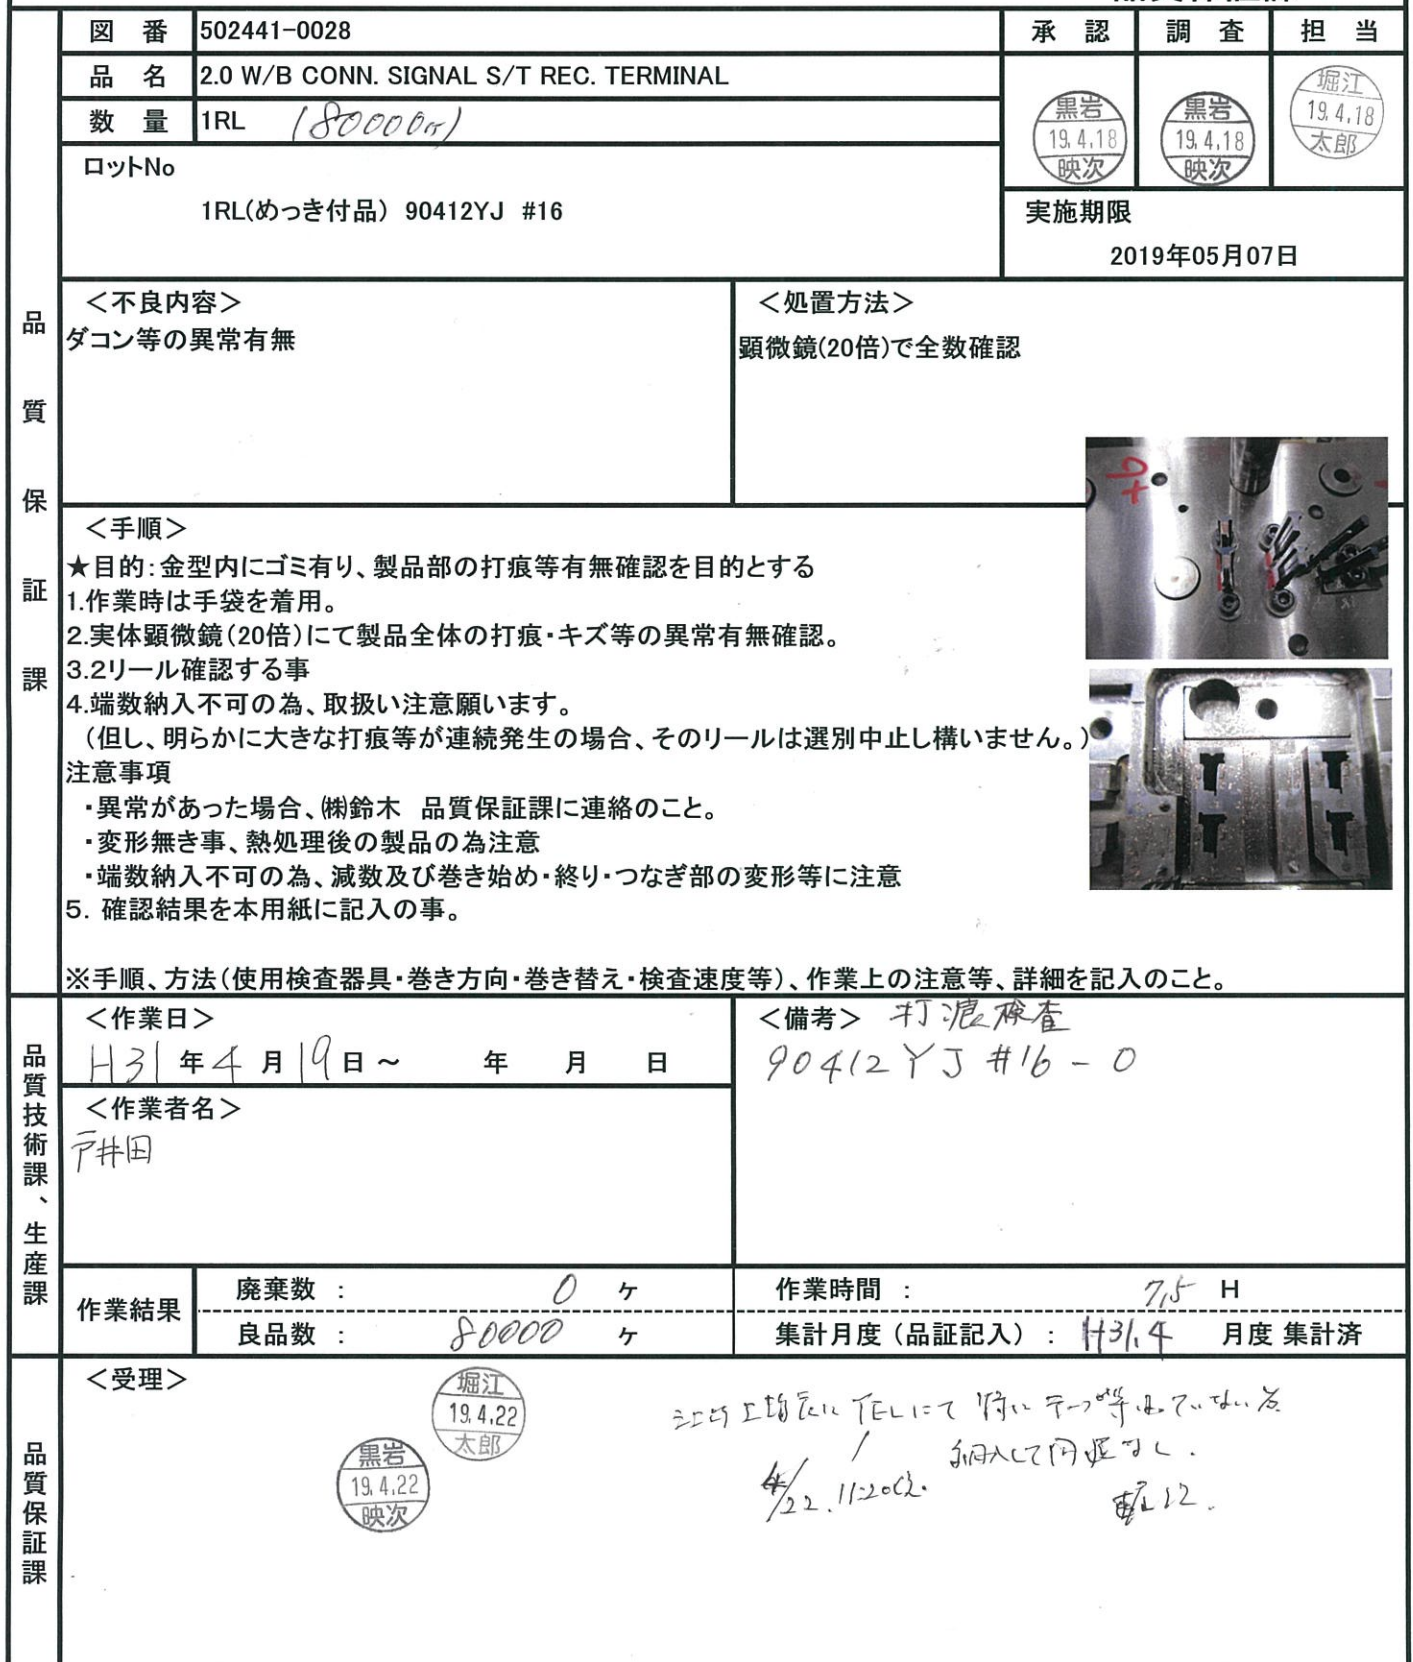 図 番 502441-0028
品 名 2.0 W/B CONN. SIGNAL S/T REC. TERMINAL
数 量 1RL (80000ケ)
ロットNo
1RL(めっき付品) 90412YJ #16
承 認 調 査 担 当
黒岩 19.4.18 映次
黒岩 19.4.18 映次
堀江 19.4.18 太郎
実施期限
2019年05月07日
品質保証課
＜不良内容＞
ダコン等の異常有無
＜処置方法＞
顕微鏡(20倍)で全数確認
＜手順＞
★目的:金型内にゴミ有り、製品部の打痕等有無確認を目的とする
1.作業時は手袋を着用。
2.実体顕微鏡(20倍)にて製品全体の打痕・キズ等の異常有無確認。
3.2リール確認する事
4.端数納入不可の為、取扱い注意願います。
(但し、明らかに大きな打痕等が連続発生の場合、そのリールは選別中止し構いません。)
注意事項
・異常があった場合、㈱鈴木 品質保証課に連絡のこと。
・変形無き事、熱処理後の製品の為注意
・端数納入不可の為、減数及び巻き始め・終り・つなぎ部の変形等に注意
5. 確認結果を本用紙に記入の事。
※手順、方法(使用検査器具・巻き方向・巻き替え・検査速度等)、作業上の注意等、詳細を記入のこと。
品質技術課、生産課
＜作業日＞
H31年4月19日～ 年 月 日
＜備考＞ 打痕検査
90412YJ #16-0
＜作業者名＞
戸井田
作業結果
廃棄数 : 0 ケ
作業時間 : 7.5 H
良品数 : 80000 ケ
集計月度(品証記入) : H31.4 月度 集計済
品質保証課
＜受理＞
堀江 19.4.22 太郎
黒岩 19.4.22 映次
TELにて 特に テープ等
納入して問題なし.
4/22. 11:20